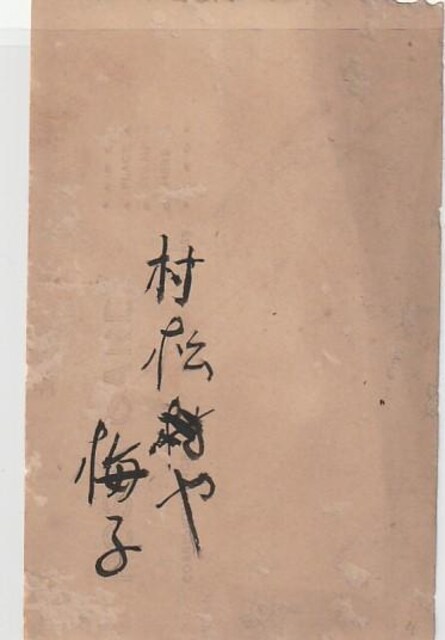 村松や
梅子